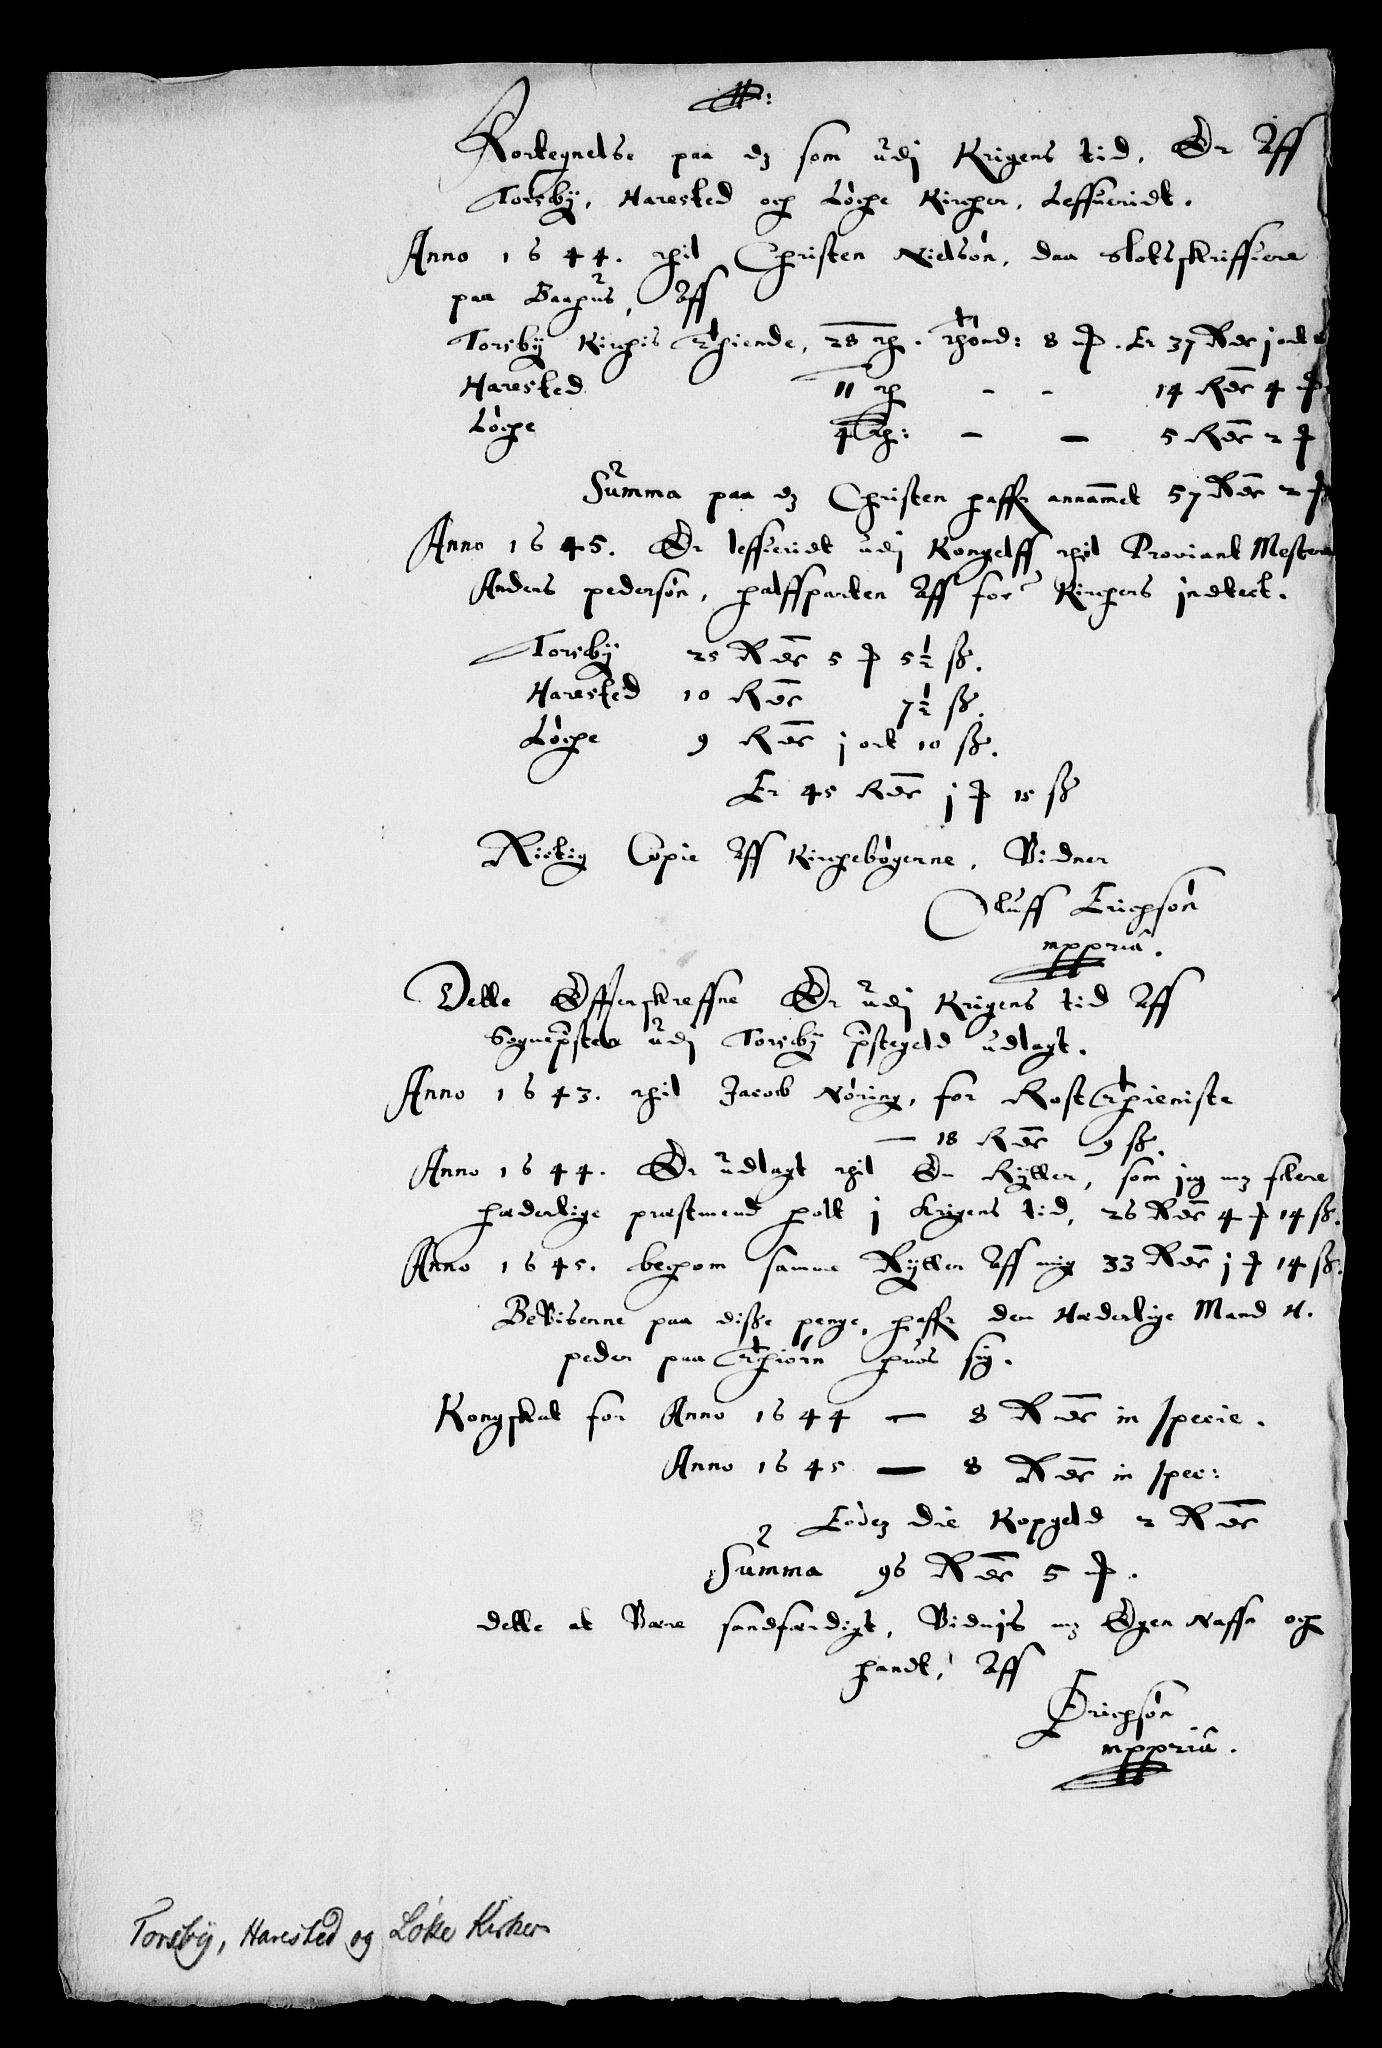 Fortegnelse paa dz som udj Krigens tid, Er Aff
Torsby, Harested och Löche Kircher, Leffueridt.
Anno 1644. thil Christen Nielsön, daa Slotsskriffuere
paa Baahus, Aff
Torsby Kirchis Thiende, 28 th. thönd: 8 . Er 37 Rdr j ort
Harested 11 th - - 14 Rdr 4
Löche 4 th: - - 5 Rdr 2
Summa paa dz Christen haffr annammet 57 Rdr 2
Anno 1645. Er leffueridt udj Kongelff thil Proviant Mester
Anders pedersön, halffparten Aff for Kirchers jndtect.
Torsby 25 Rdr 5 5½ sz.
Harested 10 Rdr 7½ sz.
Löche 9 Rdr j ort 10 sz.
Er 45 Rdr j 15 sz
Rictig Copie Aff Kirchebögerne, Vidner
Oluff Erichsön
mppria.
Dette Effterskreffne Er udj Krigens tid Aff
Sognepsten udj Torsby pstegeld udlagt.
Anno 1643. thil Jacob Nöring, for Rostthieniste
— 18 Rdr 9 sz.
Anno 1644. Er udlagt thil En Rytter, som jeg mz flere
hæderlige præstmend holt j Krigens tid, 26 Rdr 4 14 sz.
Anno 1645. bechom samme Rytter Aff mig 33 Rdr j 14 sz.
Beviserne paa disse penge, haffr den Hæderlige Mand H.
peder paa Thiörn huos sig.
Kongskat for Anno 1644 — 8 Rdr in specie.
Anno 1645 — 8 Rdr in spec:
die Kopgeld 2 Rdr
Summa 96 Rdr 5 .
dette at Være sandfærdigt, Vidnis mz Egen Naffn och
handt, Aff
Erichsön
mppria.
Torsby, Harested og Löke Kirker